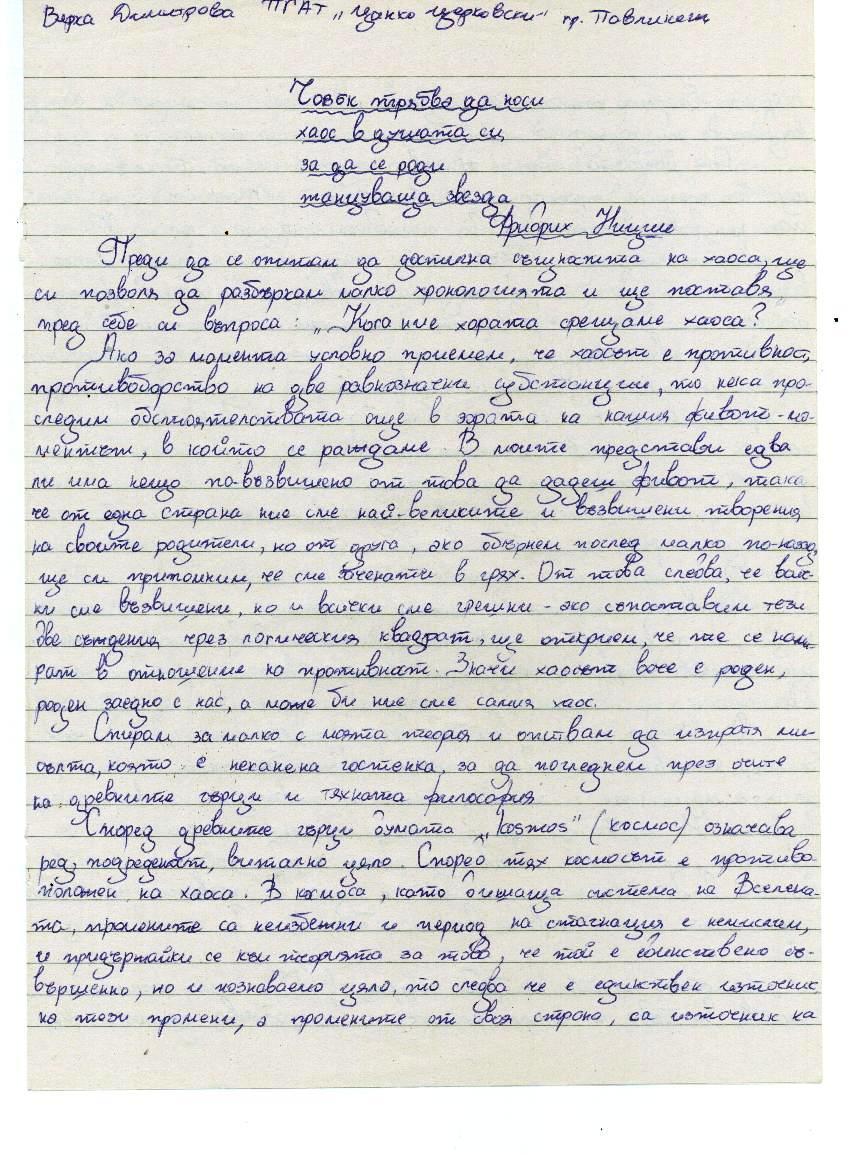 Верка Димитрова ПГАТ „Цанко Церковски" гр. Павликени
Човек трябва да носи
хаос в душата си,
за да се роди
танцуваща звезда
Фридрих Ницше
Преди да се опитам да достигна същността на хаоса, ще
си позволя да разбъркам малко хронологията и ще поставя
пред себе си въпроса: „Кога ние хората срещаме хаоса?
Ако за момента условно приемем, че хаосът е противност,
противоборство на две равнозначни субстанции, то нека про-
следим обстоятелствата още в зората на нашия живот - мо-
ментът, в който се раждаме. В моите представи едва
ли има нещо по-възвишено от това да дадеш живот, така
че от една страна ние сме най-великите и възвишени творения
на своите родители, но от друга, ако обърнем поглед малко по-назад,
ще си припомним, че сме заченати в грях. От това следва, че всич-
ки сме възвишени, но и всички сме грешни - ако съпоставим тези
две съждения чрез логическия квадрат, ще открием, че те се нами-
рат в отношение на противност. Значи хаосът вече е роден,
роден заедно с нас, а може би ние сме самия хаос.
Спирам за малко с моята теория и опитвам да изпратя ми-
сълта, която е неканена гостенка, за да погледнем през очите
на древните гърци и тяхната философия
Според древните гърци думата „kosmos" (космос) означава
ред, подреденост, витално цяло. Според тях космосът е противо-
положен на хаоса. В космоса, като дишаща система на Вселена-
та, промените са неизбежни и период на стагнация е немислим,
и придържайки се към теорията за това, че той е единствено съ-
вършенно, но и познаваемо цяло, то следва че е единствен източник
на тези промени, а промените от своя страна, са източник на